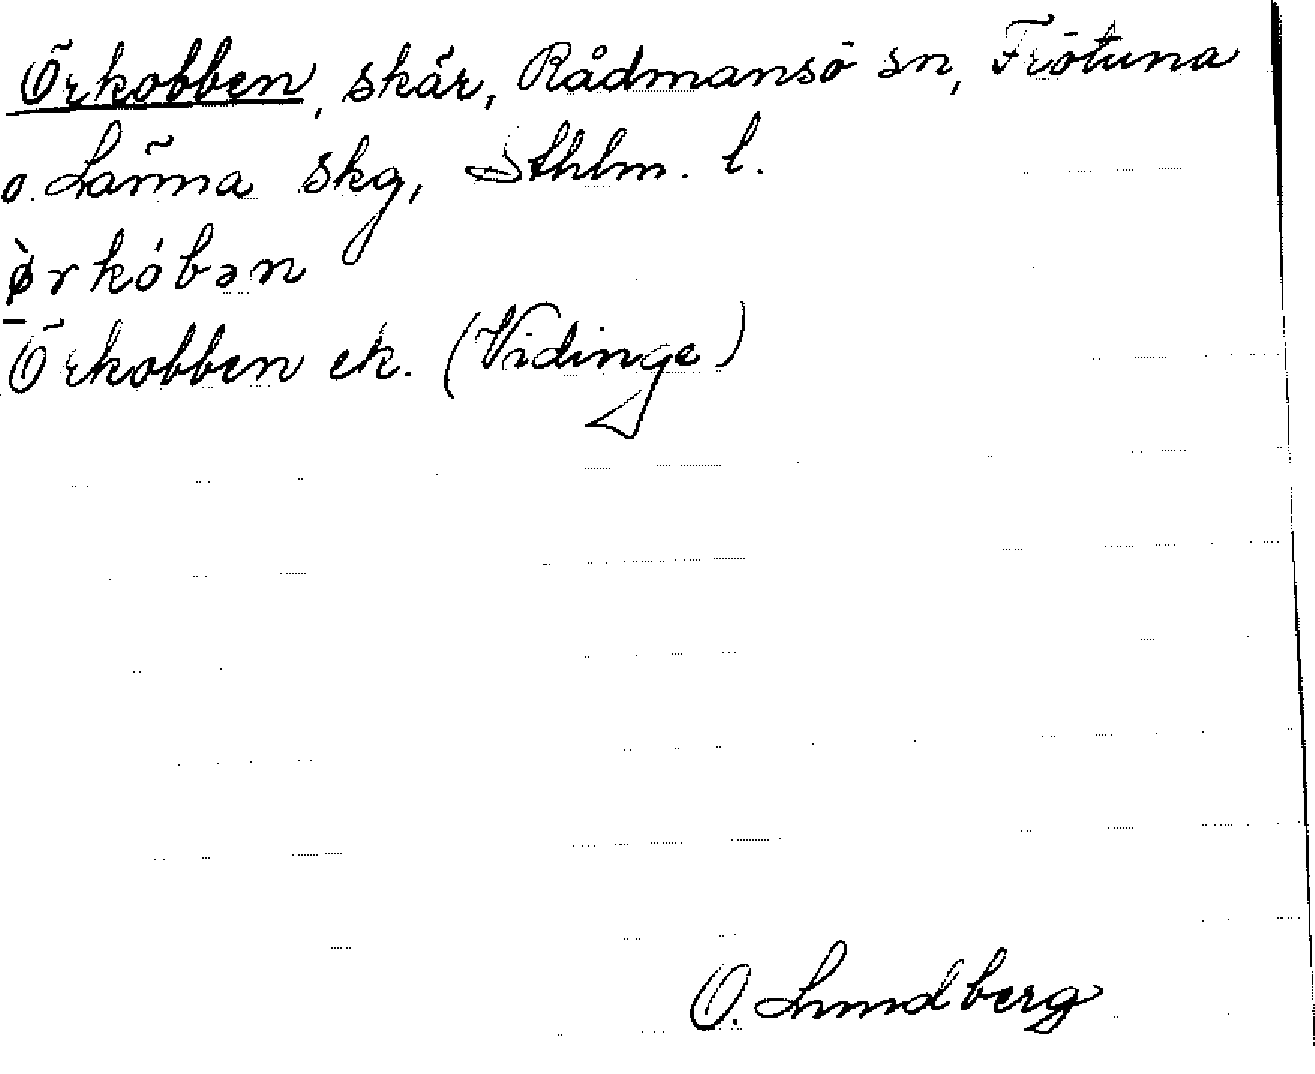 Örkobben, skär, Rådmansö sn, Frötuna
o. Länna skg, Sthlm. l.
ø̀rkȯ́bən
Örkobben ek. (Vidinge)
O. Lundberg